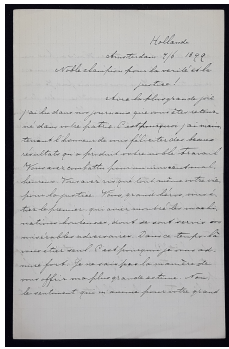 Hollande
Amsterdam 7/6 1899
Noble champion pour la vérité et la
justice!
Avec la plus grande joie
j'ai lu dans nos journaux que vous êtes retour-
né dans votre patrie. C'est pourquoi j'ai main-
tenant l'honneur de vous féliciter des beaux
résultats qu'a produit votre noble travail.
Vous avez combattu pour un innocent, mal-
heureux. Vous avez risqué tout, même votre vie
pour la justice. Vous, grand héros, vous ê-
tes le premier, qui avez montré les machi-
nations honteuses, dont se sont servis vos
misérables adversaires. Dans ce temps-là
vous étiez seul. C'est pourquoi je vous ad-
mire fort. Je ne sais pas la manière de
vous offrir ma plus grande estime. Non
le sentiment qui m'anime pour votre grand